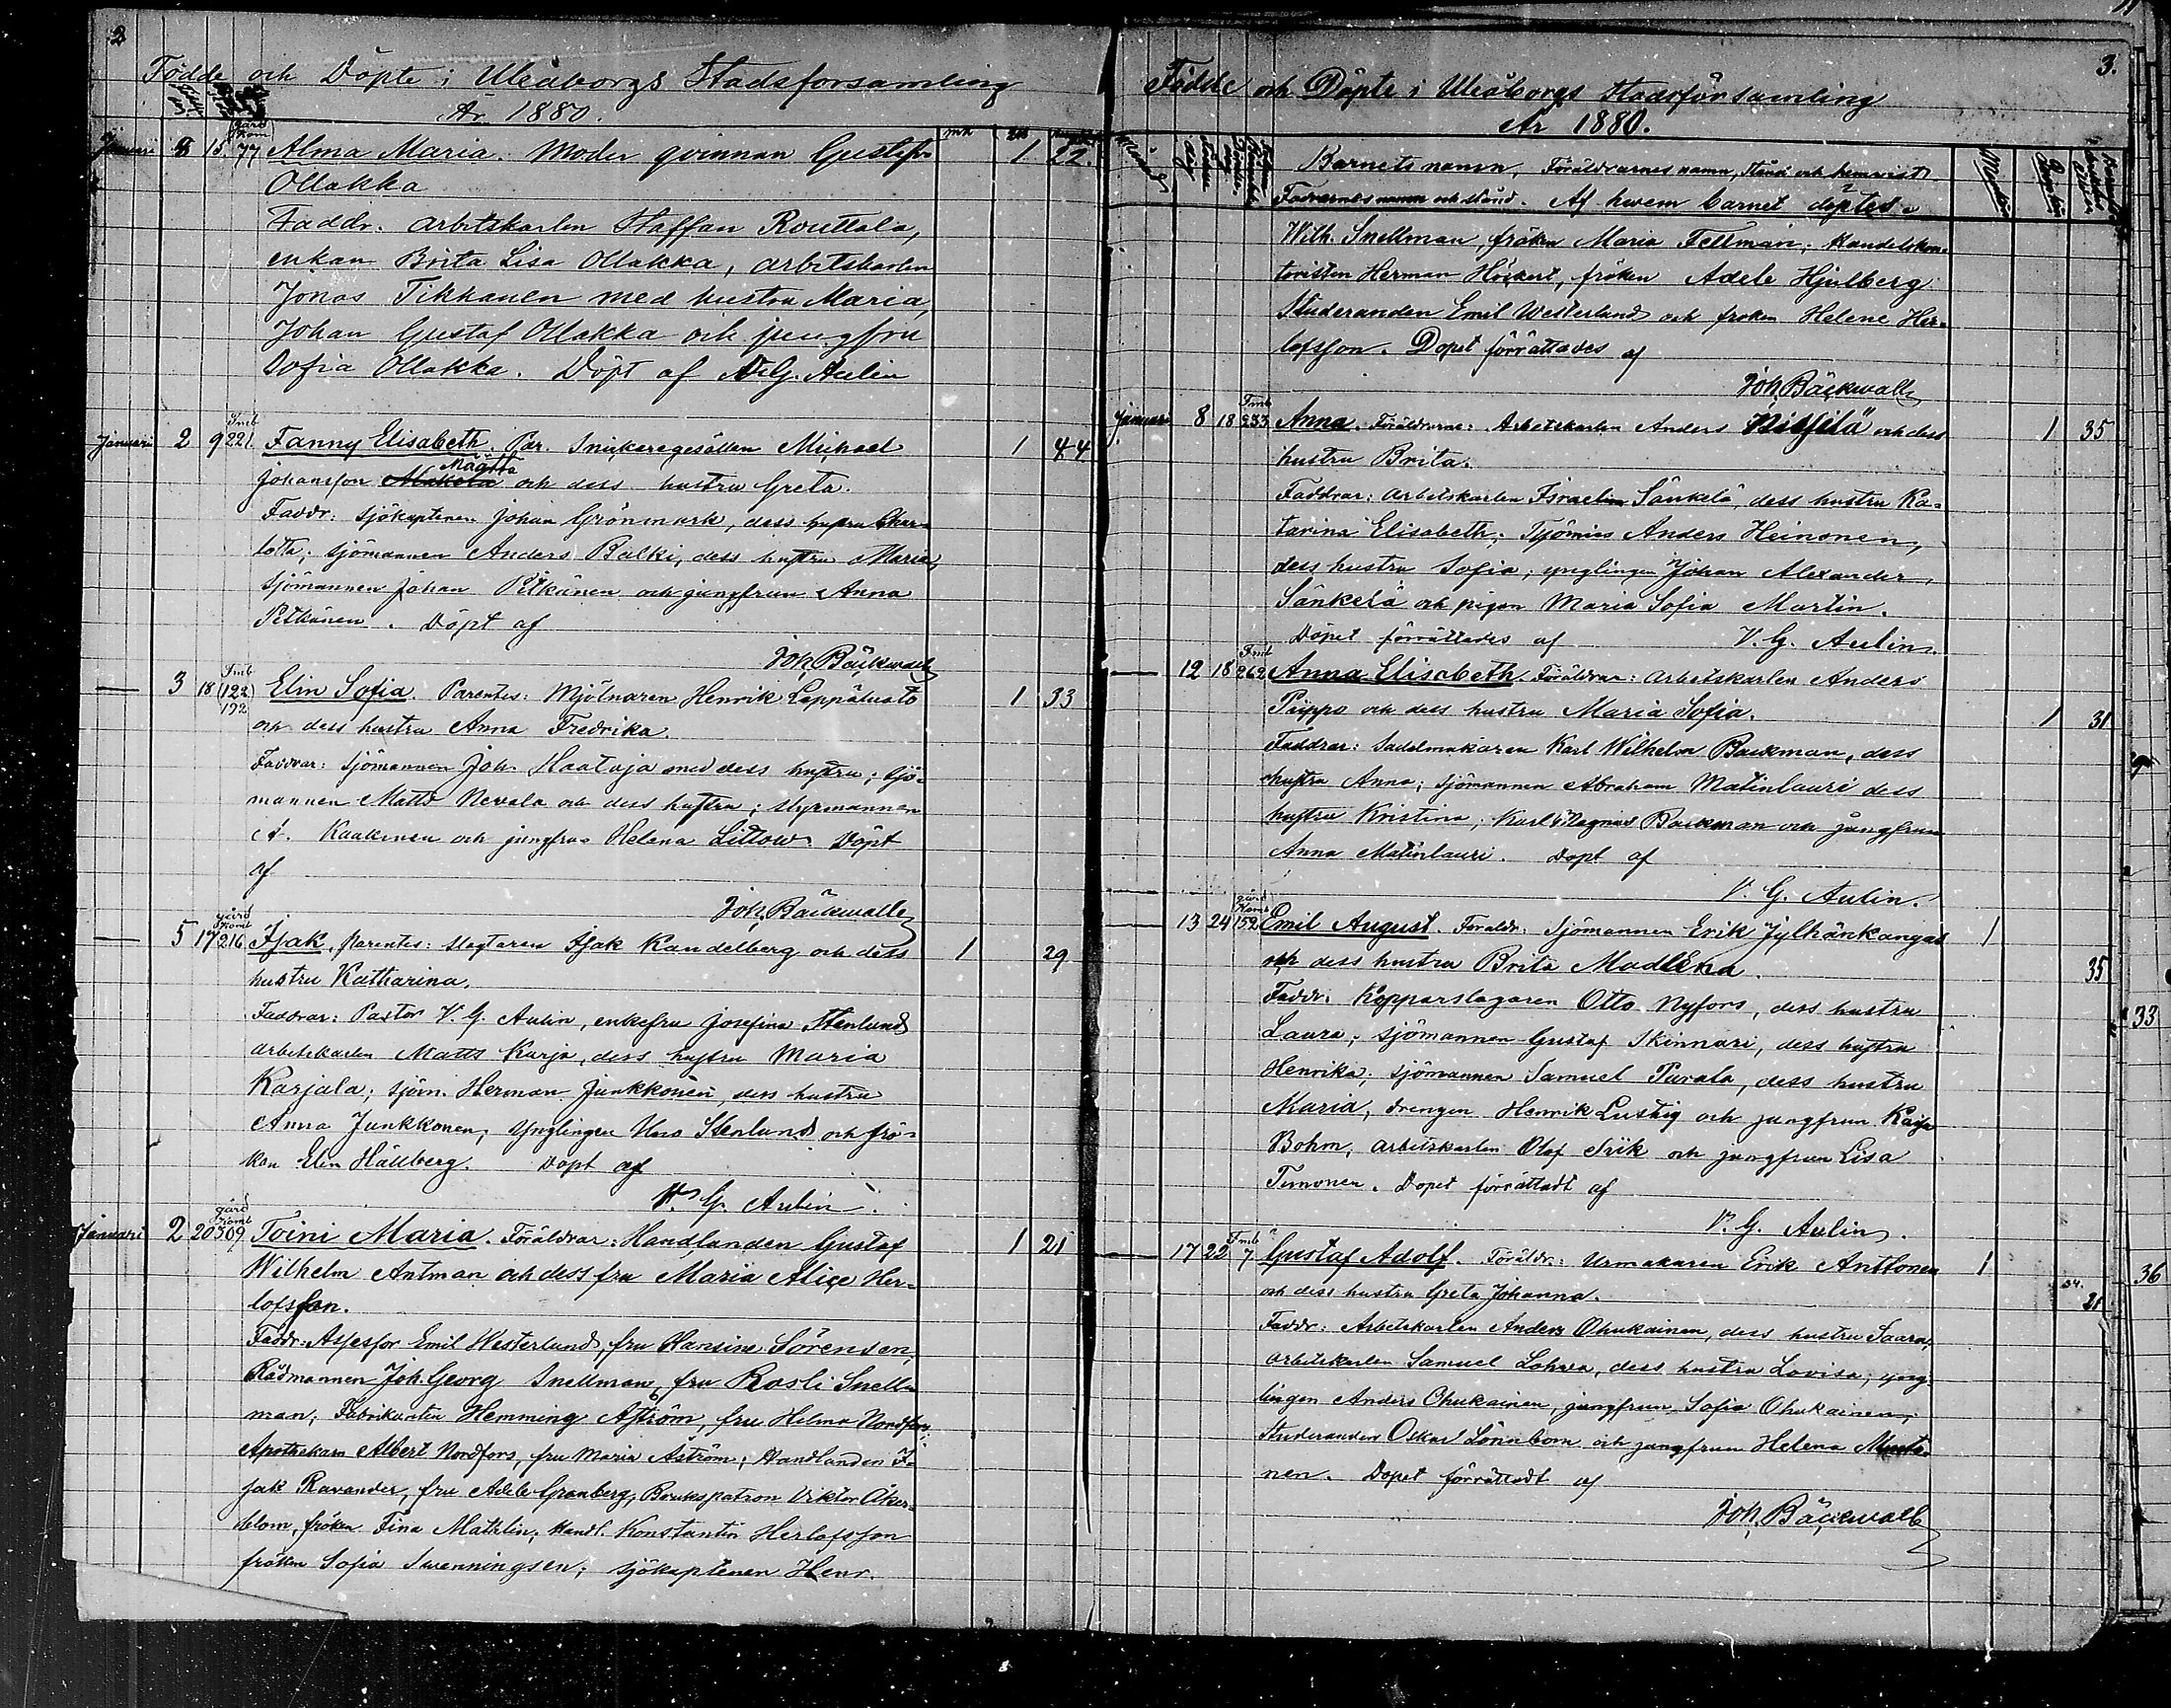 2
Födde och Döpte i Uleåborgs Stadsforsamling
År 1880.
gård
Januari 8 15. 77 Alma Maria. Moder qvinnan Gustafva 1 22
Ollakka
Faddr. arbetskarlen Staffan Routtala,
enkan Brita Lisa Ollakka, arbetskarlen
Jonas Tikkanen med hustru Maria,
Johan Gustaf Ollakka och jungfru
Sofia Ollakka. Döpt af V. G. Aulin
Januari 2 9 221. Fanny Elisabeth. Par. Snickaregesällen Michael 1 44
Määttä
Johansson och dess hustru Greta.
Faddr: sjökaptenen Johan Grönmark, dess hustru Char-
lotta; sjömannen Anders Balki, dess hustru Maria,
sjömannen Johan Pitkänen och jungfrun Anna
Pitkänen. Döpt af
Joh. Bäckwall
3 18 (122) Elin Sofia. Parentes: Mjölnaren Henrik Leppäluoto 1 33
192
och dess hustru Anna Fredrika.
Faddrar: sjömannen Joh. Haataja med dess hustru; sjö-
mannen Matts Nevala och dess hustru; styrmannen
A. och jungfru Helena Littow. Döpt
af
Joh. Bäckwall
gård
5 17 216 Isak, parentes: slagtaren Isak Kandelberg och dess 1 29
hustru Katharina.
Faddrar: Pastor V. G. Aulin, enkefru Josefina Stenlund
arbetskarlen Matts Karja, dess hustru Maria
Karjala; sjöm. Herman Junkkonen, dess hustru
Anna Junkkonen; Ynglingen Uno Stenlund och frö-
ken Elin Hällberg. Döpt af
V. G. Aulin.
gård
Januari 2 20 309 Toini Maria. Föräldrar: Handlanden Gustaf 1 21
Wilhelm Antman och dess fru Maria Alice Her-
lofsson.
Faddr: Assessor Emil Westerlund, fru Hansine Sörensen,
Rådmannen Joh. Georg Snellman, fru Rosli Snell-
man; Fabrikanten Hemming Aström, fru Hilma Nordfors,
Apothekarn Albert Nordfors, fru Maria Aström; Handlanden I-
sak Ravander, fru Adele Granberg, Brukspatron Viktor Åker-
blom, fröken Fina Mathlin; Handl. Konstantin Herlofsson
fröken Sofia Swenningsen; sjökaptenen Henr.
3.
Födde och Döpte i Uleåborgs Stadsförsamling
År 1880.
Barnets namn, Föräldrarnes namn, stånd och hemvist
Faddrarnes namn och stånd. Af hwem barnet döptes.
Wilh. Snellman, fröken Maria Fellman; Handelskon-
toristen Herman Höckert, fröken Adele Hjulberg
Studeranden Emil Westerlund och fröken Helene Her-
lofsson. Dopet förrättades af
Joh. Bäckwall
Januari 8 18 233 Anna. Föräldrar: Arbetskarlen Anders och dess 1 35
hustru Brita.
Faddrar: arbetskarlen Israel Sänkelä, dess hustru Ka-
tarina Elisabeth; Anders Heinonen,
dess hustru Sofia; ynglingen Johan Alexander
Sänkelä och pigan Maria Sofia Martin.
Dopet förrättades af V. G. Aulin.
12 18 262 Anna Elisabeth. Föräldrar: arbetskarlen Anders
Piippo och dess hustru Maria Sofia. 1 31
Faddrar: Sadelmakaren Karl Wilhelm Backman, dess
hustru Anna; sjömannen Abraham Matinlauri dess
hustru Kristina; Karl Magnus Backman och jungfrun
Anna Matinlauri. Döpt af
V. G. Aulin.
gård
13 24 152 Emil August. Föräldr. Sjömannen Erik Jylhänkangas 1
och dess hustru Brita Madlena. 35
Faddr: Kopparslagaren Otto Nyfors, dess hustru
Laura; sjömannen Gustaf Skinnari, dess hustru
Henrika; sjömannen Samuel Parala, dess hustru
Maria, drengen Henrik Lustig och jungfrun Kaisa
Bohm, arbetskarlen Olof och jungfrun Lisa
Timonen. Dopet förrättadt af
V. G. Aulin.
17 22 7 Gustaf Adolf. Föräldr: Urmakaren Erik Anttonen 1
och dess hustru Greta Johanna. 21
Faddr: Arbetskarlen Anders Ohukainen, dess hustru Saara,
arbetskarlen Samuel Lohwa, dess hustru Lovisa; yng-
lingen Anders Ohukainen, jungfrun Sofia Ohukainen,
Studeranden Oskar Lönnbom och jungfrun Helena Musto-
nen. Dopet förrättadt af
Joh. Bäckwall
33
36